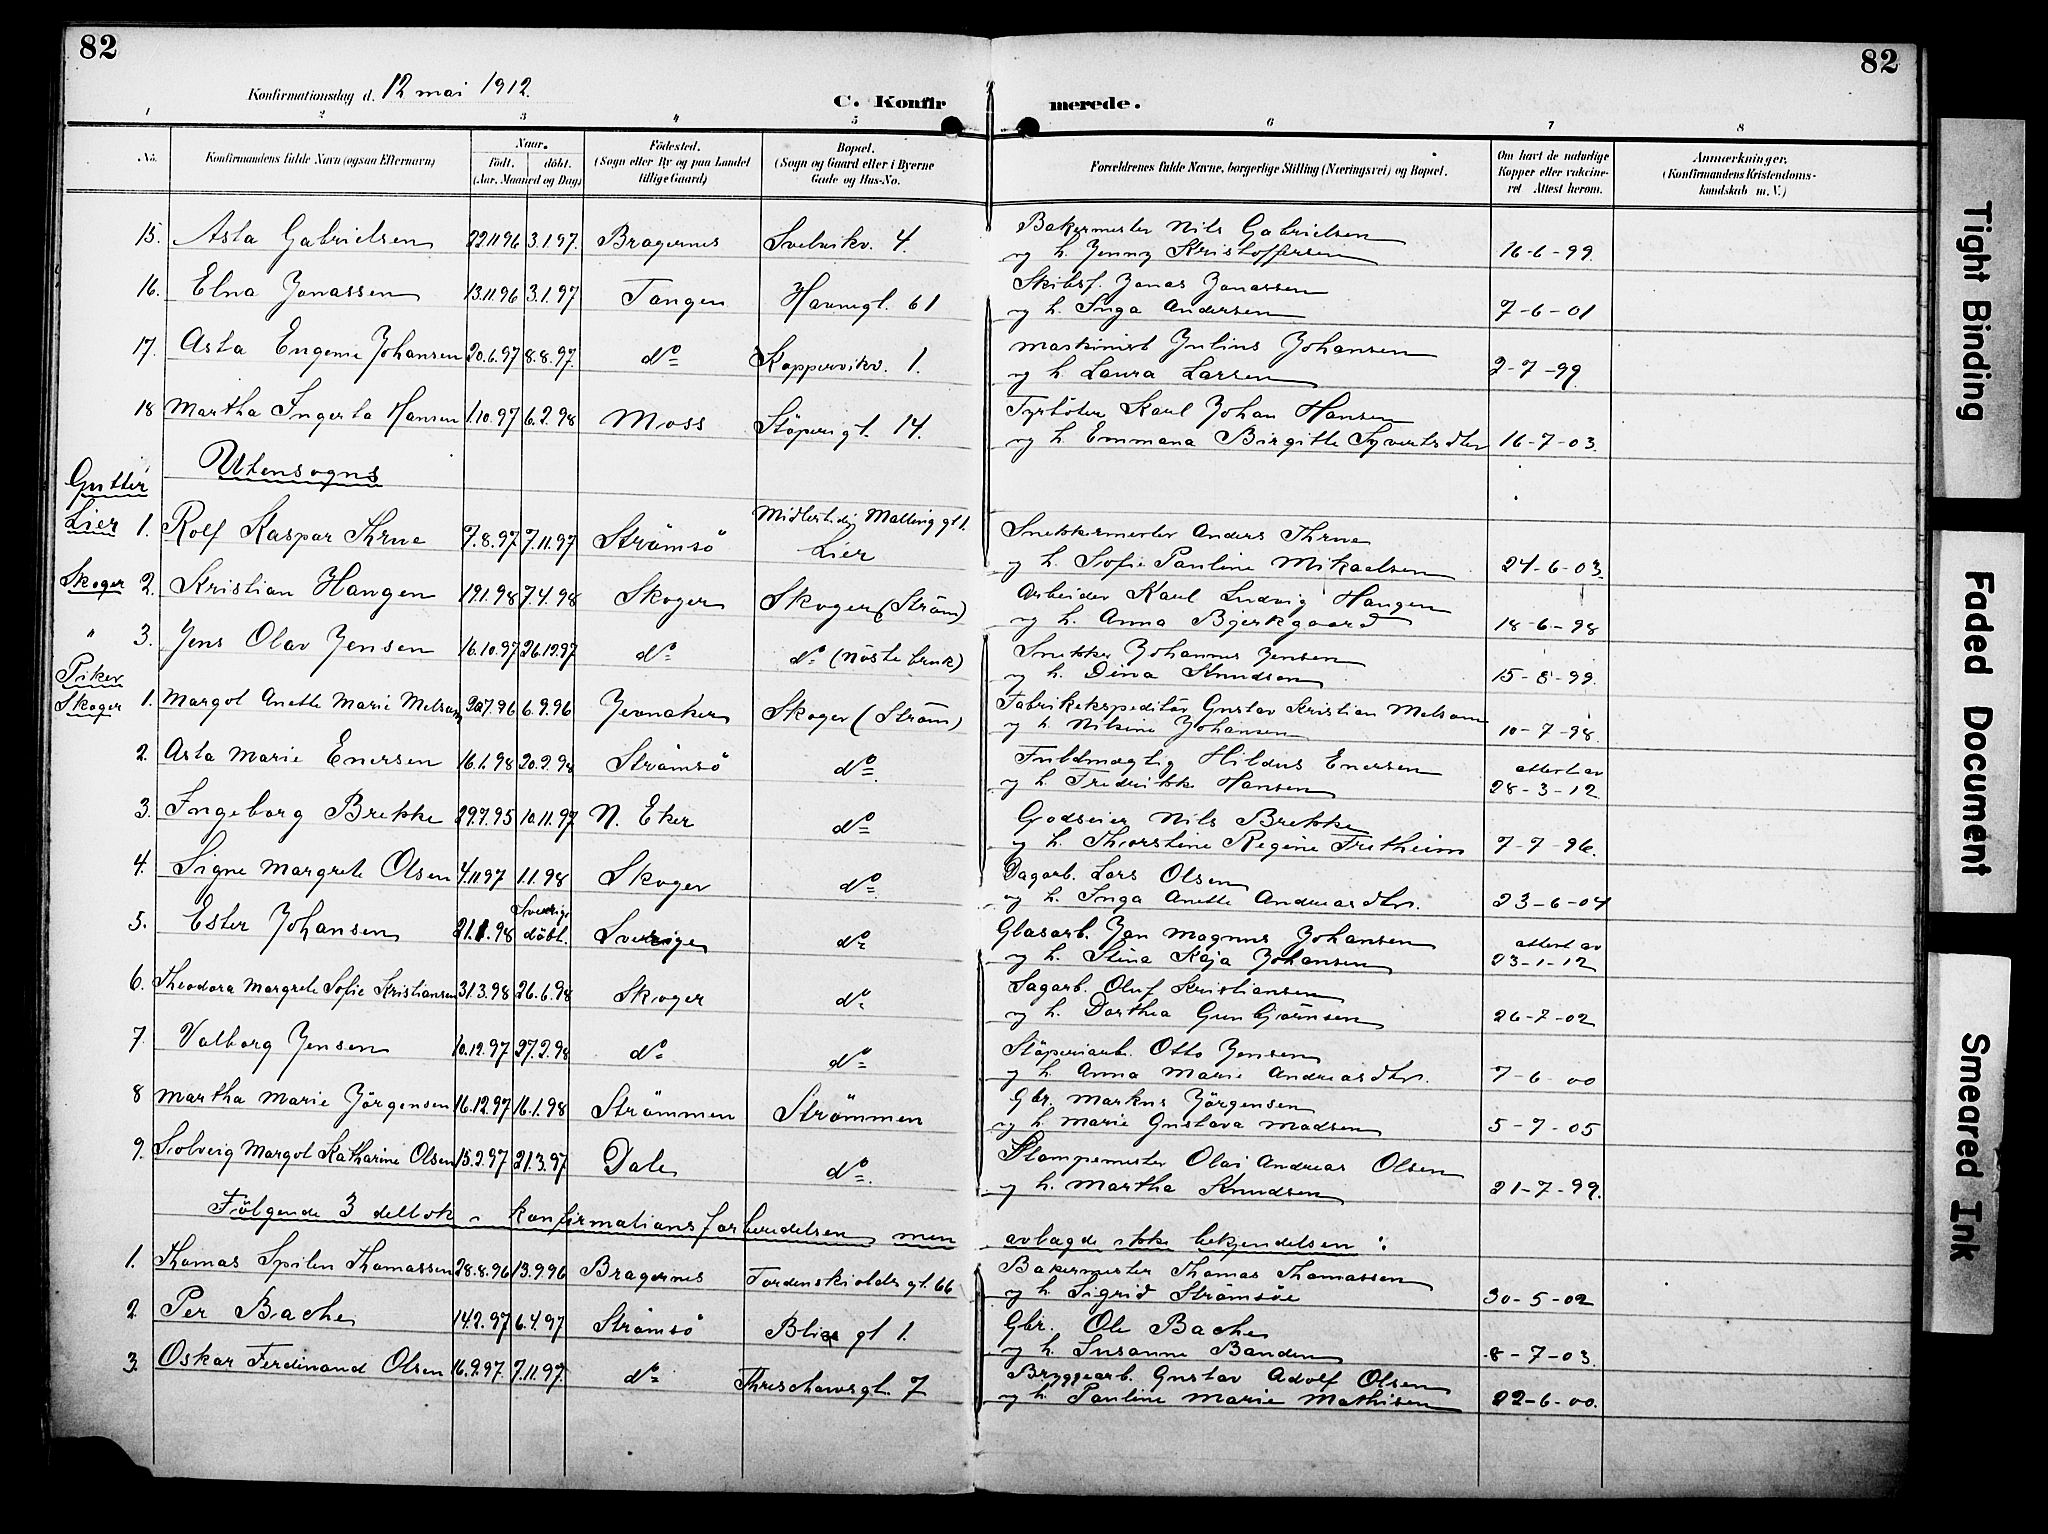 82
82
Konfirmationsdag d. 12 mai 1912.
C. Konfirmerede.
1 2 3 4 5 6 7 8
No. Konfirmandens fulde Navn (ogsaa Efternavn) Naar. født. døbt. (Aar, Maaned og Dag) Fødested. (Sogn eller By og paa Landet tillige Gaard) Bopæl. (Sogn og Gaard eller i Byerne Gade og Hus-No. Forældrenes fulde Navne, borgerlige Stilling (Næringsvei) og Bopæl. Om havt de naturlige Kopper eller vaccineret Attest herom. Anmærkninger. (Konfirmandens Kristendomskundskab m. V.)
15. Asta Gabrielsen 22.11.96 3.1.97. Bragernes Svelvikv. 4. Bakermester Nils Gabrielsen
og h. Jenny Kristoffersen 16-6-99
16. Elna Jonassen 13.11.96 3.1.97 Tangen Havnegt. 61 Skibsf. Jonas Jonassen
og h. Inga Andersen 7-6-01
17. Asta Eugenie Johansen 20.6.97 8.8.97. do Koppervikv. 1. Maskinist Julius Johansen
og h. Laura Larsen 2-7-99
18 Martha Ingerta Hansen 1.10.97 6.2.98 Moss Støperigt. 14. Fyrbøter Karl Johan Hansen
og h. Emmana Birgitte Syvertsdtr 16-7-03.
Utensogns
Gutter
Lier 1. Rolf Kaspar Thrue 7.8.97 7.11.97 Strømsø Midlertidig Mallinggt 1. Lier Snekkermester Anders Thrue
og h. Sofie Pauline Mikaelsen 24-6-03.
Skoger 2. Kristian Haugen 19.1.98 7.4.98 Skoger Skoger (Strøm) Arbeider Karl Ludvig Haugen
og h. Anna Bjerkgaard 18-6-98
" 3. Jens Olav Jensen 16.10.97 26.12.97 do do (Nøste bruk) Snekker Johannes Jensen
og h. Dina Knudsen 15-8-99.
Piker
Skoger 1. Margot Anette Marie Melsom 20.7.96 6.9.96 Jevnaker Skoger (Strøm) Fabrikekspeditør Gustav Kristian Melsom
og h Nilsine Johansen 10-7-98.
2. Asta Marie Enersen 16.1.98 20.2.98 Strømsø do Fuldmægtig Hildus Enersen attest av
og h. Fredrikke Hansen 28-3-12.
3. Ingeborg Brekke 29.7.95 10.11.97 N. Eker do Godseier Nils Brekke
og h. Thorstine Regine Fretheim 7-7-96.
4. Signe Margrete Olsen 4.11.97 1.1.98 Skoger do Dagarb. Lars Olsen
og h. Inga Anette Andreasdtr. 23-6-04
5. Ester Johansen 21.1.98 Sverige døbt. Sverige do Glasarb. Jan Magnus Johansen attest av
og h. Stina Kaja Johansen 23-1-12
6. Theodora Margrete Sofie Kristiansen 31.3.98 26.6.98 Skoger do Sagarb. Oluf Kristiansen
og h. Dorthea Gunbjørnsen 26-7-02
7. Valborg Jensen 10.12.97 27.2.98 do do Støperiarb. Otto Jensen
og h. Anna Marie Andreasdtr. 7-6-00
8 Martha Marie Jørgensen 16.12.97 16.1.98 Strømmen Strømmen Gbr. Markus Jørgensen
og h. Marie Gustava Madsen 5-7-05
9. Solveig Margot Katharine Olsen 15.2.97 21.3.97 Dale do Stampemester Olai Andreas Olsen
og h. Martha Knudsen 21-7-99.
Følgende 3 deltok i konfirmationsforberedelsen men avlagde ikke bekjendelsen:
1. Thomas Spilen Thomassen 28.8.96 13.9.96 Bragernes Tordenskioldsgt. 66 Bakermester Thomas Thomassen
og h. Sigrid Strømsøe 30-5-02
2. Per Bache 14.2.97 6.4.97 Strømsø gt 1. Gbr. Ole Bache
og h. Susanne 8-7-03.
3. Oskar Ferdinand Olsen 16.9.97. 7.11.97. do gt. 7 Bryggearb. Gustav Adolf Olsen
og h. Pauline Marie Mathisen 22-6-00.
Tight Binding
Faded Document
Smeared Ink